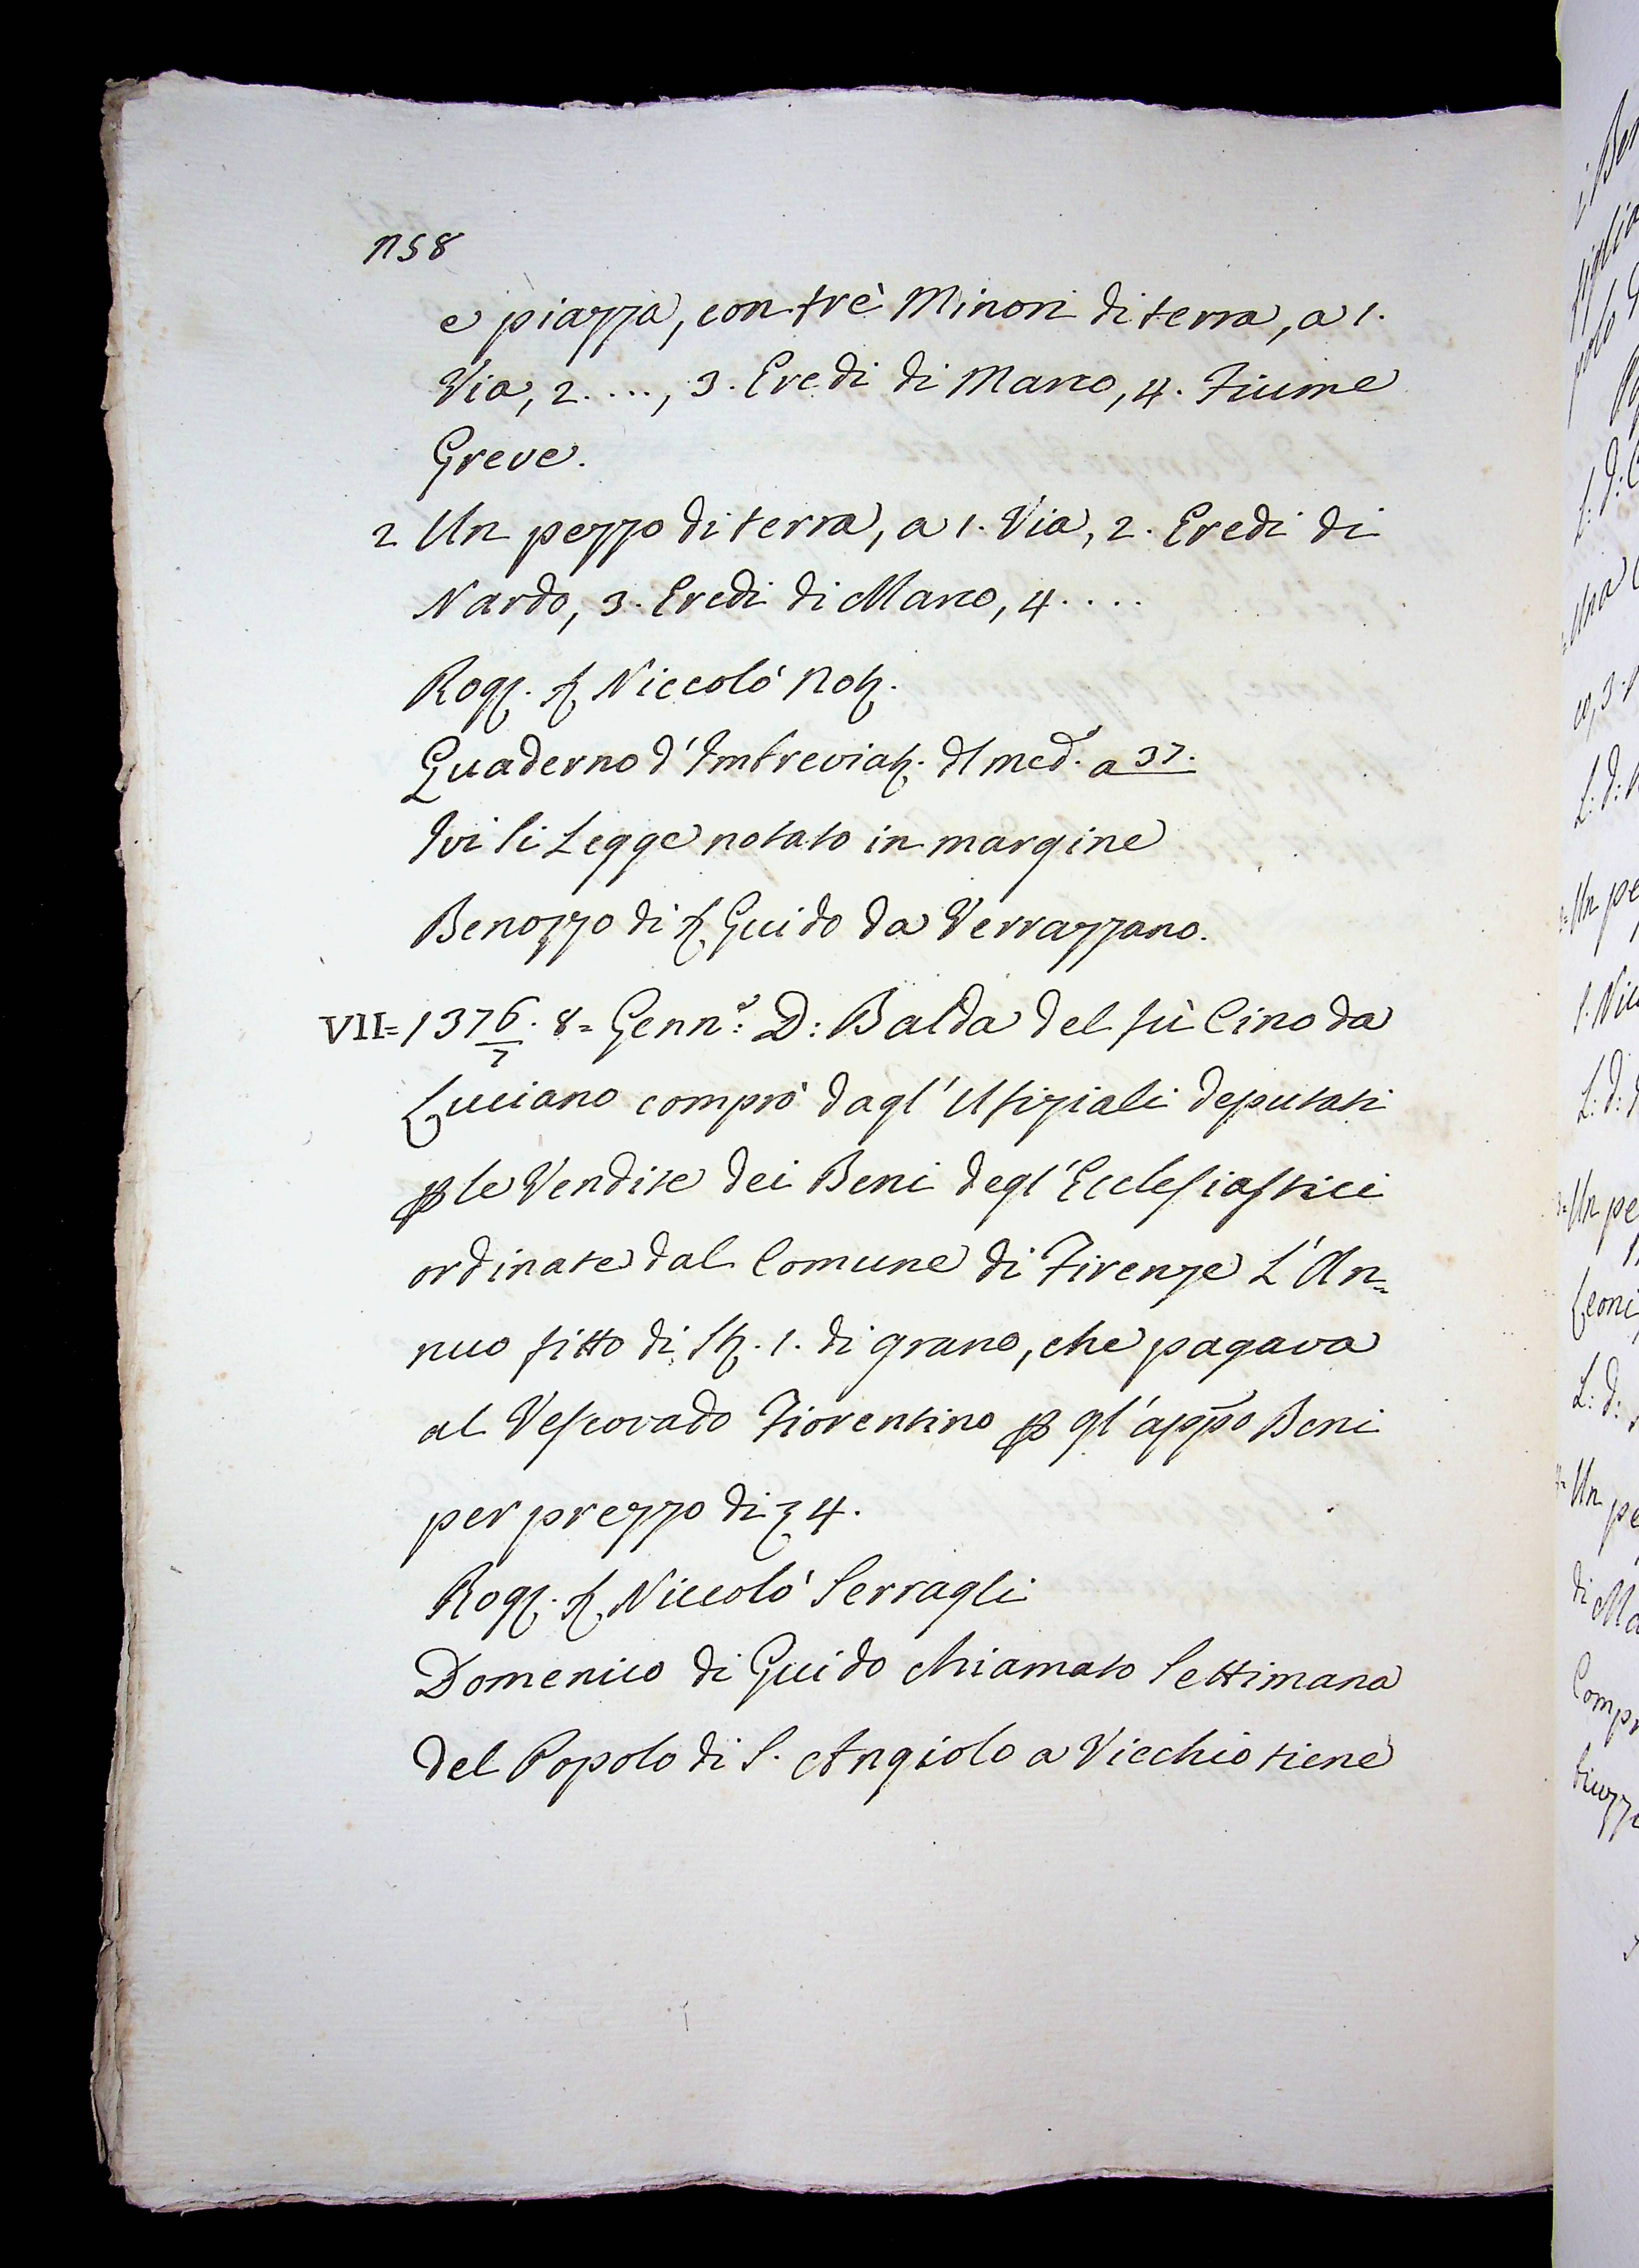 1158
e piazza, con trè Minori di terra, a 1.
Via, 2...., 3. Eredi di Marco, 4. Fiume
Greve.
2 Un pezzo di terra, a 1. Via, 2. Eredi di
Nardo, 3. Eredi di Marco, 4....
Rog. S. Niccolò Not.
Quaderno d'Imbreviat. dl med. a 37.
Ivi si Legge notato in margine
Benozzo di S. Guido da Verrazzano.
VII= 1376/7. 8= Genn.o: D: Balda del fù Cino da
Luciano comprò dagl' Ufiziali deputati
p le Vendite dei Beni degl' Ecclesiastici
ordinate dal Comune di Firenze L'An=
nuo fitto di St. 1. di grano, che pagava
al Vescovado Fiorentino p gl' appo Beni
per prezzo di 4.
Rog. S. Niccolò Serragli
Domenico di Guido chiamato Settimana
del Popolo di S. Angiolo a Vicchio tiene